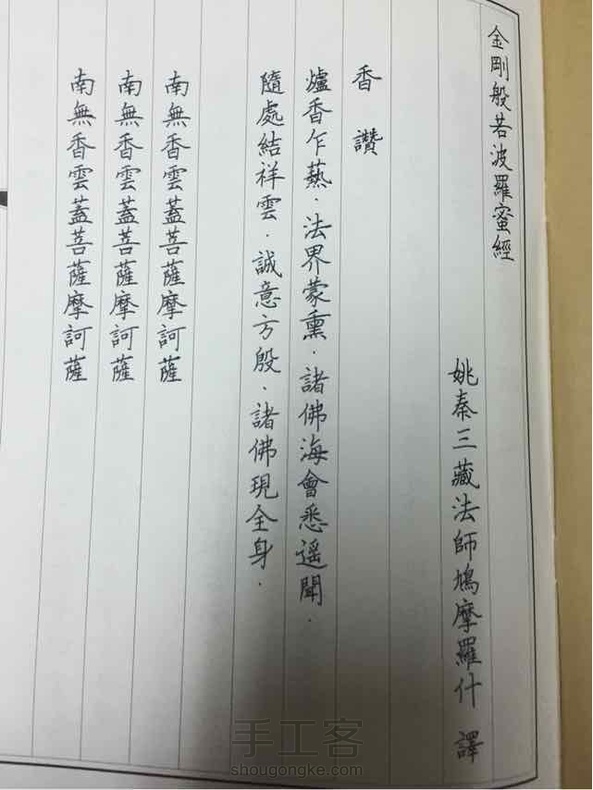 金剛般若波羅蜜經
姚秦三藏法師鳩摩羅什 譯
香 讚
爐香乍爇．法界蒙熏．諸佛海會悉遥聞．
隨處結祥雲．誠意方殷．諸佛現全身．
南無香雲蓋菩薩摩訶薩
南無香雲蓋菩薩摩訶薩
南無香雲蓋菩薩摩訶薩
手工客
shougongke.com